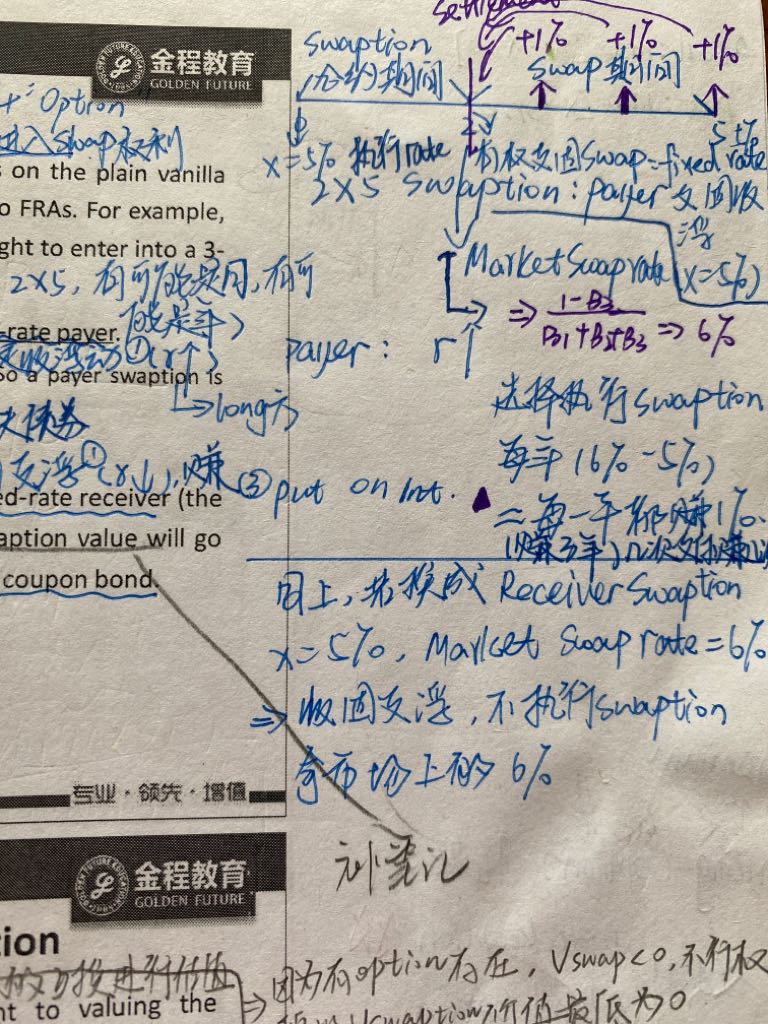 settlement
+1% +1% +1%
金程教育
GOLDEN FUTURE
swaption
合约期间
swap期间
Option
进入swap权利
x=5% 执行rate
有权支固swap=fixed rate
2×5 swaption: payer 支固收浮
(x=5%)
s on the plain vanilla
o FRAs. For example,
ght to enter into a 3-
2×5, 有可能是月, 有可
能是年
-rate payer.
收浮动 ① (r↑)
so a payer swaption is
→ long方
Market swap rate
⇒ 1-B3 / B1+B2+B3 ⇒ 6%
payer: r↑
选择执行swaption
每年 (6%-5%)
= 每一年都赚1%.
支浮① (r↓), 赚
② put on int.
ed-rate receiver (the
aption value will go
coupon bond.
同上, 若换成 Receiver Swaption
x=5%, Market swap rate=6%
⇒ 收固支浮, 不执行swaption
市场上的 6%
专业·领先·增值
金程教育
GOLDEN FUTURE
tion
nt to valuing the
⇒ 因为有option存在, Vswap<0, 不行权
Vswaption价值最低为0